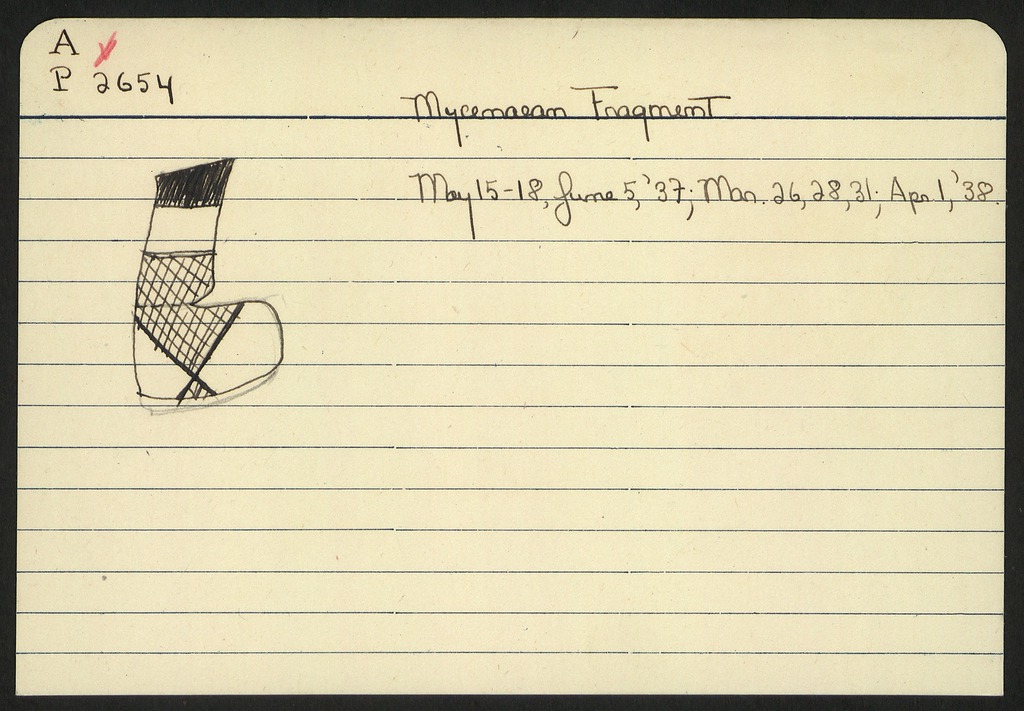 A
P 2654
Mycenaean Fragment
May 15-18, June 5, '37; Mar. 26, 28, 31; Apr. 1, '38.